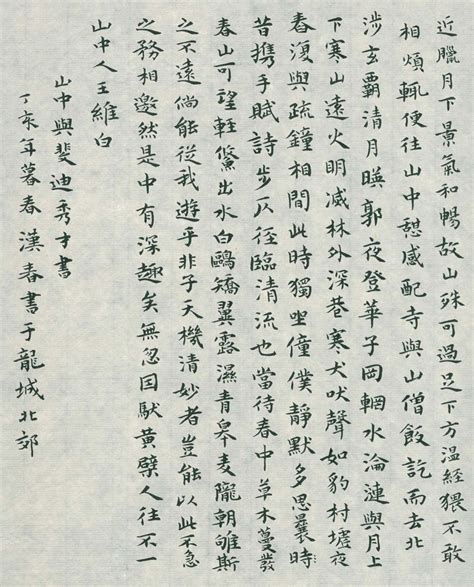 近臘月下景氣和暢故山殊可過足下方溫經猥不敢
相煩輒便往山中憇感配寺與山僧飯訖而去北
涉玄霸清月暎郭夜登華子岡輞水淪漣與月上
下寒山遠火明滅林外深巷寒犬吠聲如豹村墟夜
舂復與疏鐘相間此時獨坐僮僕靜默多思曩時
昔携手賦詩步仄徑臨清流也當待春中草木蔓發
春山可望輕鯈出水白鷗矯翼露濕青皋麥隴朝雊斯
之不遠倘能從我遊乎非子天機清妙者豈能以此不急
之務相邀然是中有深趣矣無忽因馱黃檗人往不一
山中人王維白
山中與斐迪秀才書
丁亥年暮春漢春書于龍城北郊